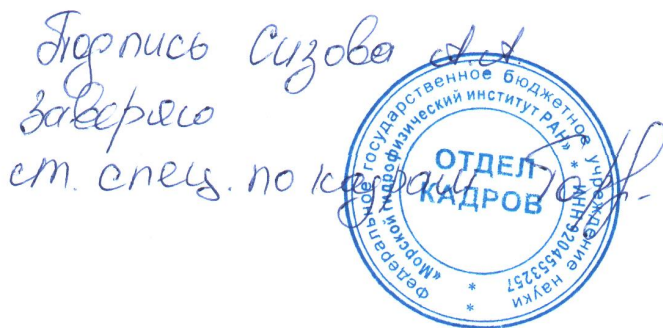 Подпись Сизова А.А.
заверяю
ст. спец. по кадрам
Федеральное государственное бюджетное учреждение науки
«Морской гидрофизический институт РАН» * ИНН 9204553257
ОТДЕЛ
КАДРОВ